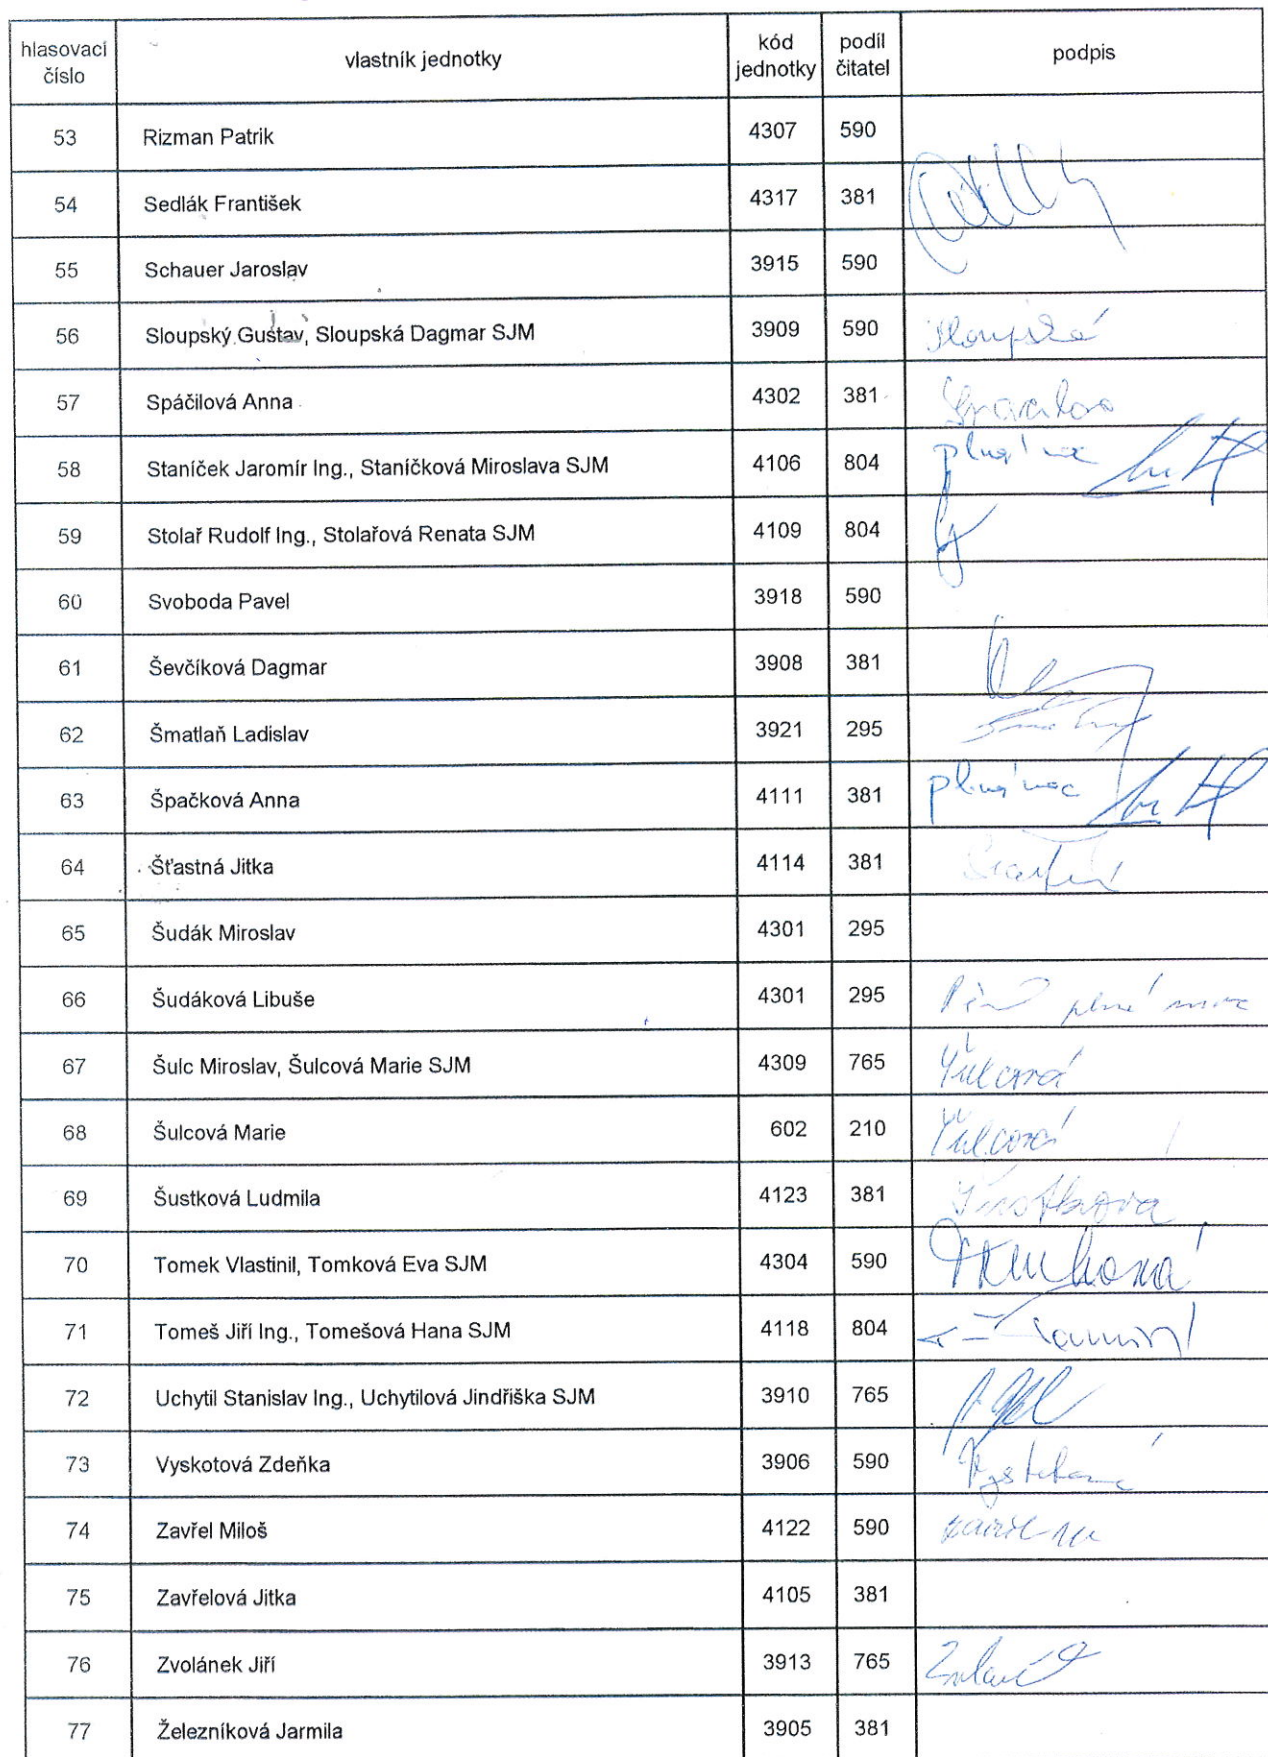 hlasovací číslo vlastník jednotky kód jednotky podíl čitatel podpis
53 Rizman Patrik 4307 590
54 Sedlák František 4317 381
55 Schauer Jaroslav 3915 590
56 Sloupský Gustav, Sloupská Dagmar SJM 3909 590 Sloupská
57 Spáčilová Anna 4302 381
58 Staníček Jaromír Ing., Staníčková Miroslava SJM 4106 804 plná moc
59 Stolař Rudolf Ing., Stolařová Renata SJM 4109 804
60 Svoboda Pavel 3918 590
61 Ševčíková Dagmar 3908 381
62 Šmatlaň Ladislav 3921 295
63 Špačková Anna 4111 381 plná moc
64 Šťastná Jitka 4114 381
65 Šudák Miroslav 4301 295
66 Šudáková Libuše 4301 295 plná moc
67 Šulc Miroslav, Šulcová Marie SJM 4309 765 Šulcová
68 Šulcová Marie 602 210 Šulcová
69 Šustková Ludmila 4123 381 Šustková
70 Tomek Vlastinil, Tomková Eva SJM 4304 590
71 Tomeš Jiří Ing., Tomešová Hana SJM 4118 804
72 Uchytil Stanislav Ing., Uchytilová Jindřiška SJM 3910 765
73 Vyskotová Zdeňka 3906 590
74 Zavřel Miloš 4122 590
75 Zavřelová Jitka 4105 381
76 Zvolánek Jiří 3913 765
77 Železníková Jarmila 3905 381